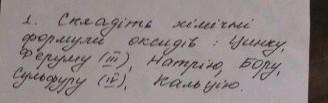 1. Складіть хімічні
формули оксидів: Цинку,
Феруму (III), Натрію, Бору,
Сульфуру (IV), Кальцію.